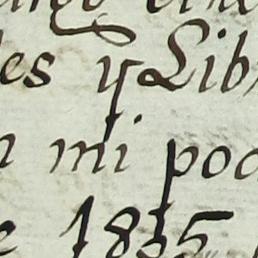 es y Lib
n mi pod
e 1835